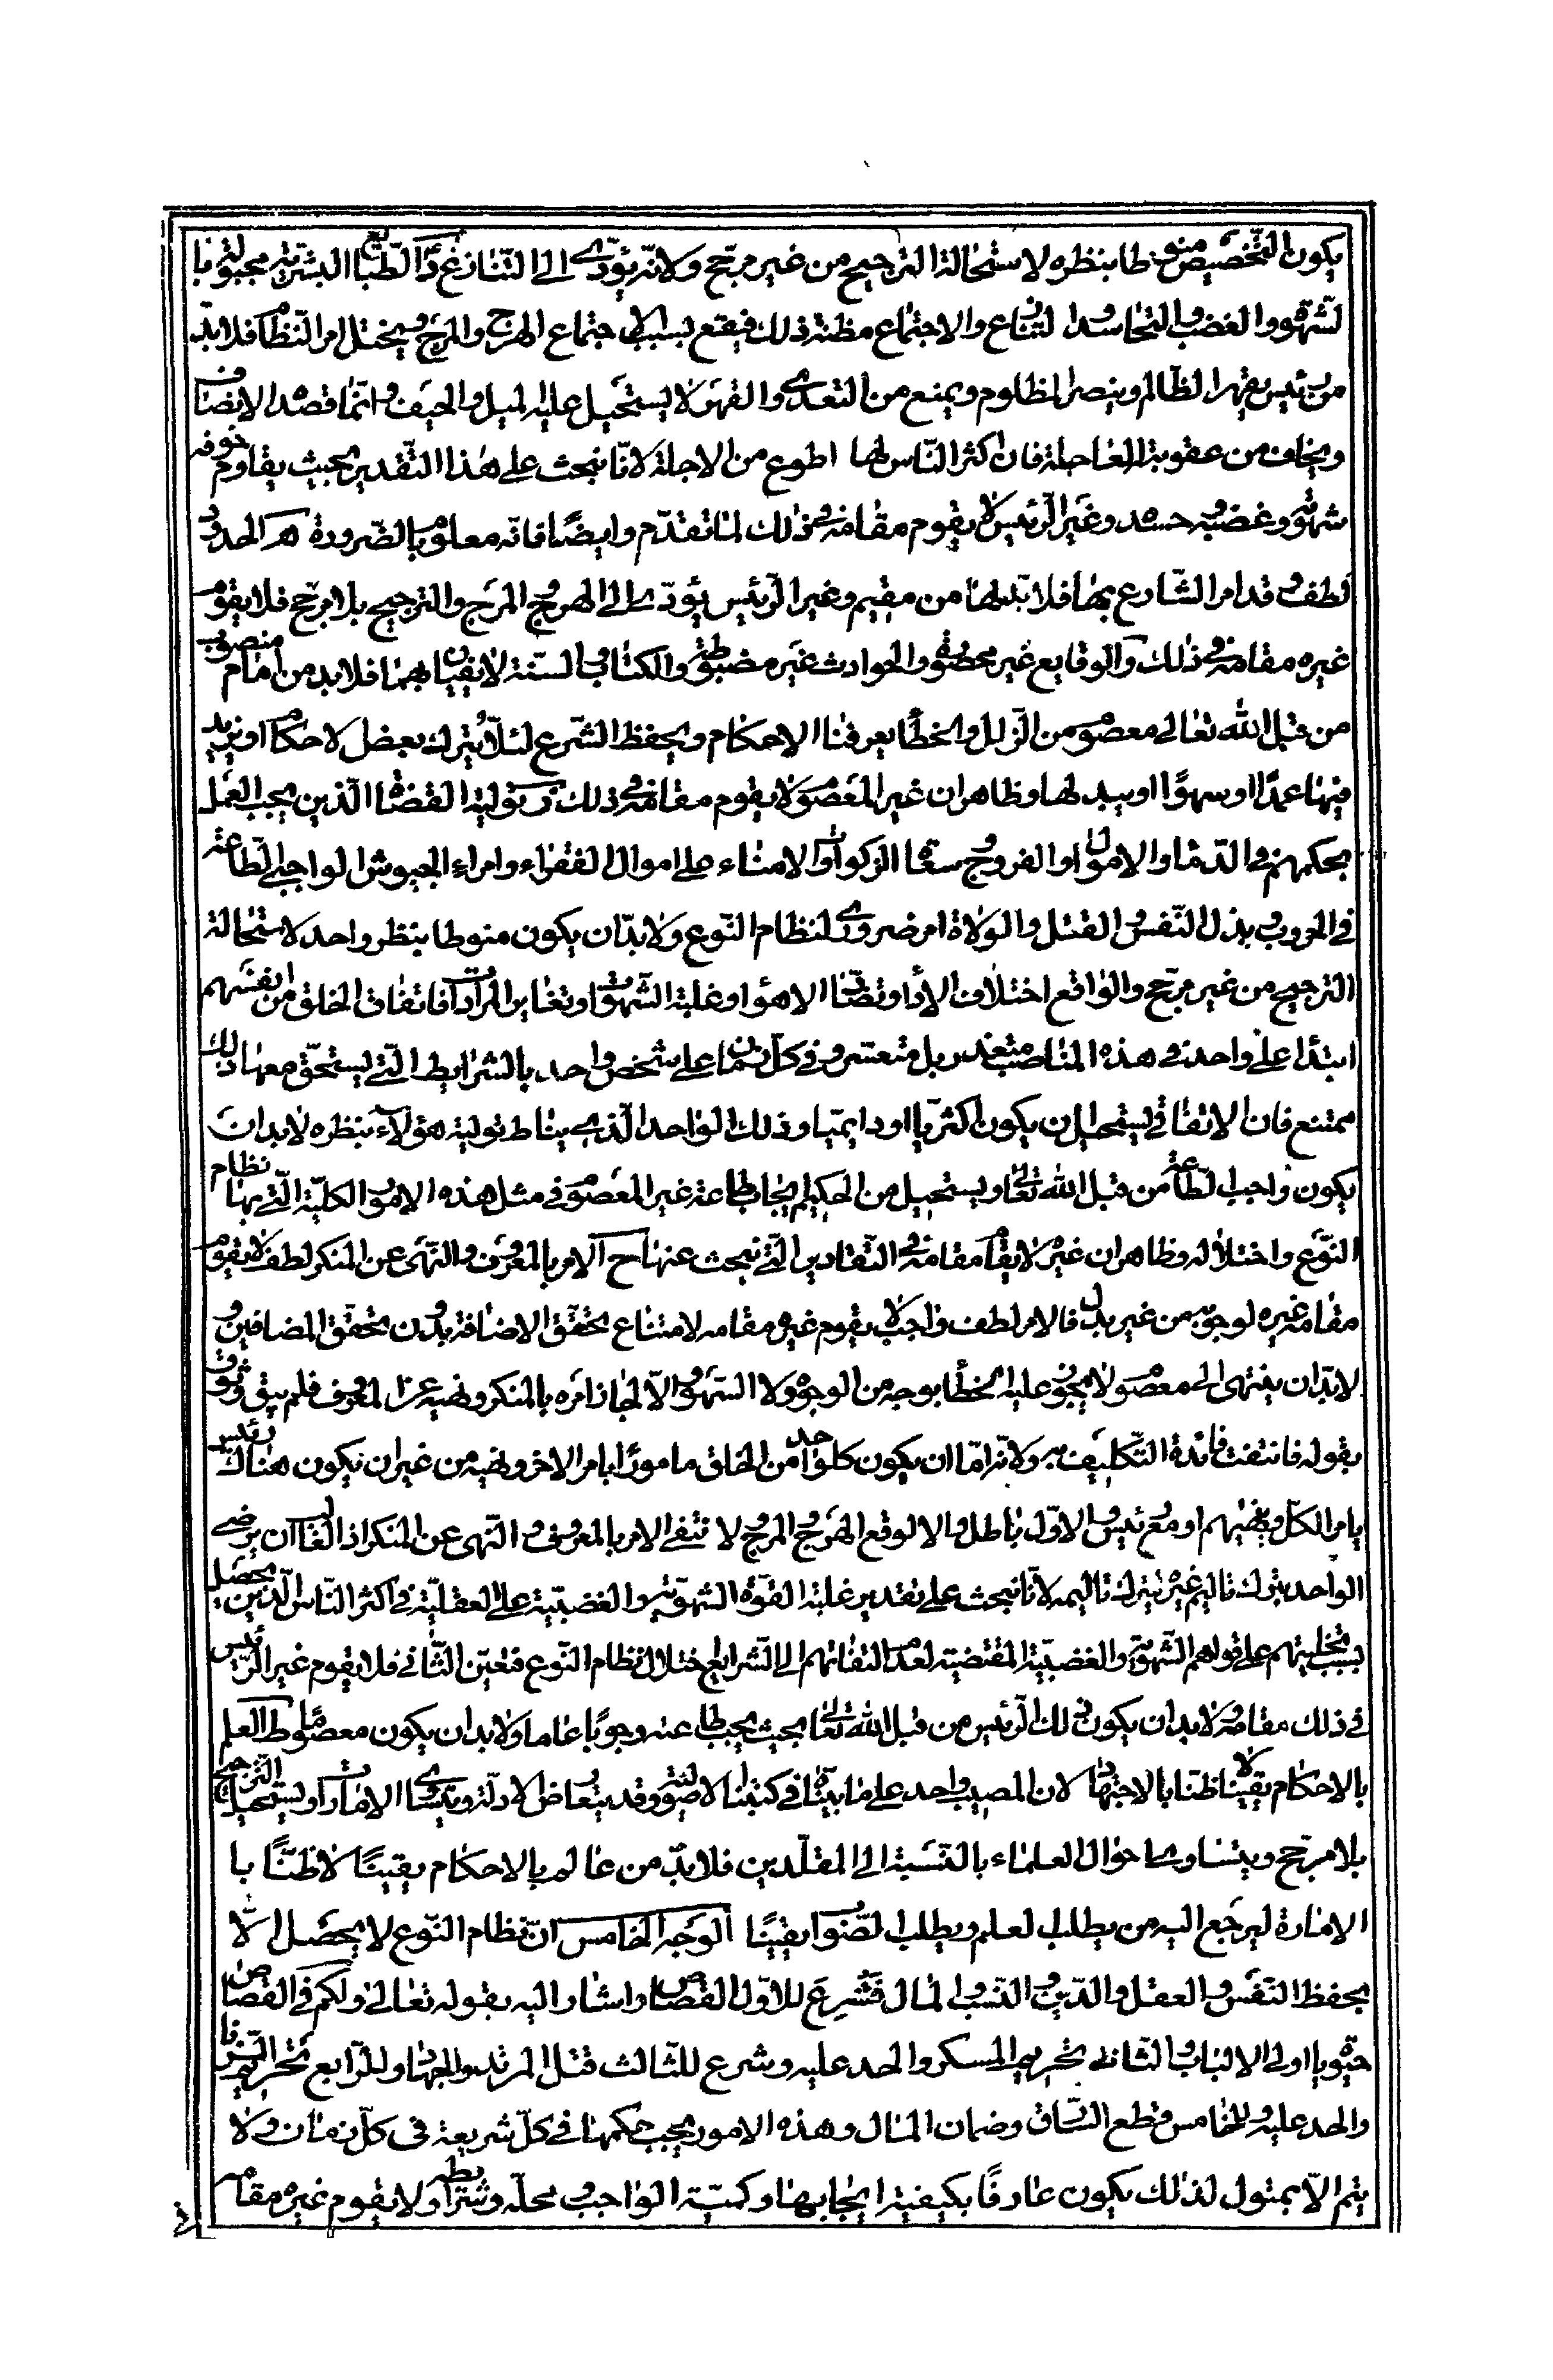 يكون التخصيص منوطا بنظره لاستحالة الترجيح من غير مرجح ولانه يؤدى الى التنازع د الطبايع البشرية مجبولة با
لشهوة والغضب والتحاسد والتنازع والاجتماع مظنة ذلك فيقع بسبب الاجتماع الهرج والمرج ويختل امر النظام فلابد
من رئيس يقهر الظالم وينصر المظلوم ويمنع من التعدى والقهر لا يستحيل عليه الميل والحيف وانما قصده الانصاف
ويخاف من عقوبته العاجلة فان اكثر الناس لها اطوع من الاجلة لانا نبحث على هذا التقدير بحيث يقاوم خوفه
شهوته وغضبه وحسده وغير الرئيس لا يقوم مقامه فى ذلك لما تقدم وايضا فانه معلوم بالضرورة ه الحدود
لطف وقد امر الشارع بها فلابد لها من مقيم وغير الرئيس يؤدى الى الهرج والمرج والترجيح بلا مرجح فلا يقوم
غيره مقامه فى ذلك و الوقايع غير محصورة والحوادث غير مضبوطة والكتاب والسنة لا يفيان بهما فلابد من امام منصوب
من قبل الله تعالى معصوم من الزلل والخطأ يعرفنا الاحكام ويحفظ الشرع لئلا يترك بعض الاحكام او يزيد
فيها عمدا او سهوا او يبدلها وظاهر ان غير المعصوم لا يقوم مقامه فى ذلك ز تولية القضاة الذين يجب العمل
بحكمهم فى الدماء والاموال والفروج وسعاة الزكوات والامناء على اموال الفقراء وامراء الجيوش الواجبى الطاعة
فى الحروب وبذل النفس والقتل والولاة امر ضرورى لنظام النوع ولابد ان يكون منوطا بنظر واحد لاستحالة
الترجيح من غير مرجح والواقع اختلاف الاراء وتضاد الاهواء وغلبة الشهوات وتغاير المرادات فاتفاق الخلق من انفسهم
ابتداء على واحد فى هذه المناصب متعذر بل متعسر وفى كل زمان على شخص واحد بالشرايط التى يستحق معها ذلك
ممتنع فان الاتفاقى يستحيل ان يكون اكثريا او دايميا وذلك الواحد الذى يناط تولية هؤلاء بنظره لابد ان
يكون واجب الطاعة من قبل الله تعالى ويستحيل من الحكيم ايجاب طاعة غير المعصوم فى مثل هذه الامور الكلية التى بها نظام
النوع واختلاله وظاهر ان غيره لا يقوم مقامه فى التقادير التى نبحث عنها ح الامر بالمعروف والنهى عن المنكر لطف لا يقوم
مقامه غيره لوجوبه من غير بدل فالامر لطف واجب لا يقوم غيره مقامه لامتناع تحقق الاضافة بدون تحقق المضافين و
لابد ان ينتهى الى معصوم لا يجوز عليه الخطأ بوجه من الوجوه ولا السهو والا لجاز امره بالمنكر ونهيه عن المعروف فلم يبق وثوق
بقوله فانتفت فائدة التكليف به ولانه اما ان يكون كل واحد من الخلق مامورا بامر الاخر ونهيه من غير ان يكون هناك رئيس
يامر الكل وينهيهم او مع رئيس والاول باطل والا لوقع الهرج والمرج ولا نتفى الامر بالمعروف والنهى عن المنكر اذ الغالب ان يرضى
الواحد بترك تاليم غيره بترك تاليمه لانا نبحث على تقدير غلبة القوة الشهوية والغضبية على العقلية فى اكثر الناس الذين يحصل
بسبب تخليتهم على قواهم الشهوية والغضبية المقتضية لعدم التفاتهم الى الشرايع اختلال نظام النوع فتعين الثانى فلا يقوم غير الرئيس
فى ذلك مقامه ولابد ان يكون ذلك الرئيس من قبل الله تعالى بحيث يجب طاعته وجوبا عاما ولابد ان يكون معصوما ط العلم
بالاحكام يقينا لا ظنا بالاجتهاد لان المصيب واحد على ما بيناه فى كتبنا الاصولية وقد يتعارض الادلة ويتساوى الامارات ويستحيل الترجيح
بلا مرجح ويتساوى احوال العلماء بالنسبة الى المقلدين فلابد من عالم بالاحكام يقينا لا ظنا با
الامارة ليرجع اليه من يطلب العلم ويطلب الصواب يقينا الوجه الخامس ان نظام النوع لا يحصل الا
بحفظ النفس والعقل والدين والنسب والمال فشرع للاول القصاص واشار اليه بقوله تعالى ولكم فى القصاص
حيوة يا اولى الالباب والثانى تحريم المسكر والحد عليه وشرع للثالث قتل المرتد والجهاد وللرابع تحريم الزنا
والحد عليه وللخامس قطع السارق وضمان المال وهذه الامور يجب حكمها فى كل شريعة فى كل زمان ولا
يتم الا بمتول لذلك يكون عارفا بكيفية ايجابها وكمية الواجب ومحله وشرايطه ولا يقوم غيره مقامه